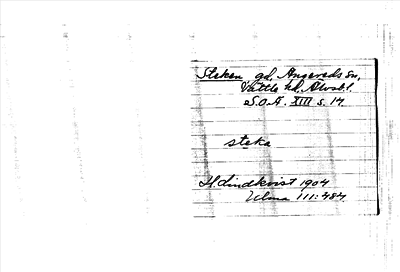 Steken gd, Angereds sn,
Vättle hd, Älvsb l.
S.O.Ä. XIII s. 17
steka
H. Lindkvist 1904
Ulma 111:484